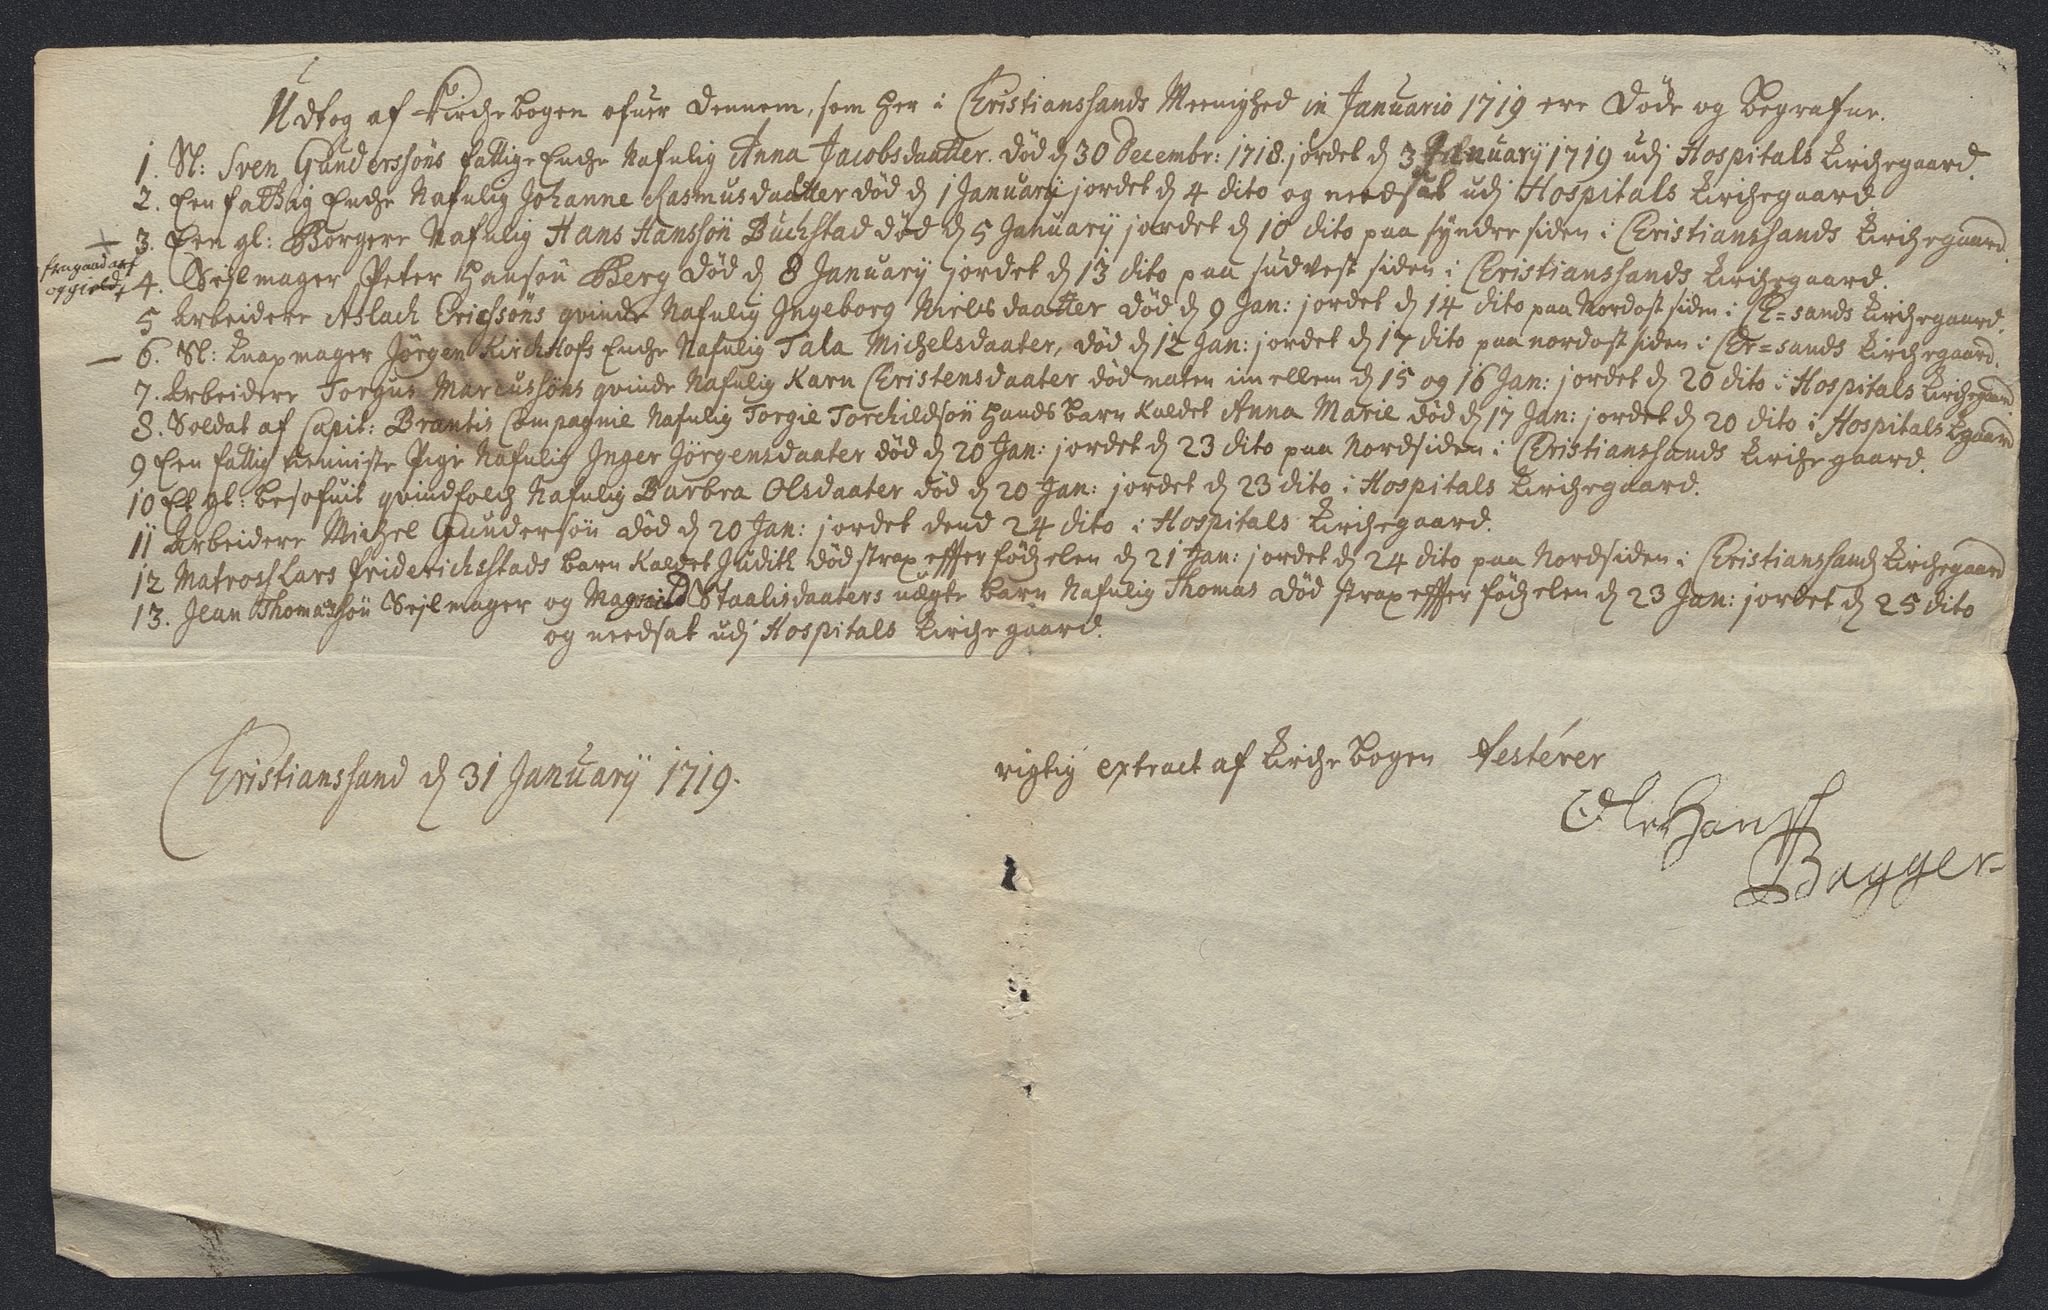 Udtog af Kirchebogen ofuer dennem, som her i Christianssands Meenighed in Januario 1719 ere døde og begrafne.
1. Sl: Sven Gunderssöns fattige Enche Nafnlig Anna Jacobsdaatter. død d 30 Decembr: 1718. jordet d 3 Januarij 1719 udj Hospitals Kirchegaard.
2. Een fattig Enche Nafnlig Johanne Rasmusdaatter død d 1 Januarij jordet d 4 dito og needsat udj Hospitals Kirchegaard
3. Een gl: Borgere Nafnlig Hans Hanssön Buchstad død d 5 Januarij jordet d 10 dito paa syndre siden i Christianssands Kirchegaard.
og gield
4. Sejlmager Peter Hansön Berg død d 8 Januarij jordet d 13 dito paa sudvest siden i Christianssands Kirchegaard.
5 Arbeidere Aslach Erichsöns qvinde Nafnlig Ingeborg Nielsdaatter død d 9 Jan: jordet d 14 dito paa Nordost siden i Chr=sands Kirchegaard.
6. Sl: Knapmager Jörgen Kirchhofs Enche Nafnlig Tala Michelsdaater, død d 12 Jan: jordet d 17 dito paa nordost siden i Chr=sands Kirchegaard.
7. Arbeidere Torgus Marcussöns qvinde Nafnlig Karn Christensdaater død naten imellem d 15 og 16 Jan: jordet d 20 dito i Hospitals Kirchegaard
8. Soldat af Capit: Brantis Compagnie Nafnlig Torgie Torchildsön hands barn kaldet Anna Marie død d 17 Jan: jordet d 20 dito i Hospitals Kgaard
9 Een fattig tienniste Pige Nafnlig Inger Jörgensdaater død d 20 Jan: jordet d 23 dito paa Nordsiden i Christianssands Kirchegaard.
10 Et gl: besofuit qvindfolch Nafnlig Barbra Olsdaater død d 20 Jan: jordet d 23 dito i Hospitals Kirchegaard.
11 Arbeidere Michel Gundersön død d 20 Jan: jordet dend 24 dito i Hospitals Kirchegaard.
12 Matros Lars Friderichstads barn kaldet Judith død strax effter födzelen d 21 Jan: jordet d 24 dito paa Nordsiden i Christianssands Kirchegaard
13. Jean Thomassön Sejlmager og Magnild Staalisdaaters uægte barn Nafnlig Thomas død strax effter födzelen d 23 Jan: jordet d 25 dito
og needsat udj Hospitals Kirchegaard.
Christianssand d 31 Januarij 1719.
rigtig extract af Kirchebogen testérer
Ole Hanss
Bagger